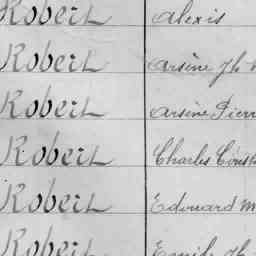 Robert Alexis
Robert Arsène
Robert Arsène Pierr
Robert Charles Const
Robert Edouard M
Robert Emile